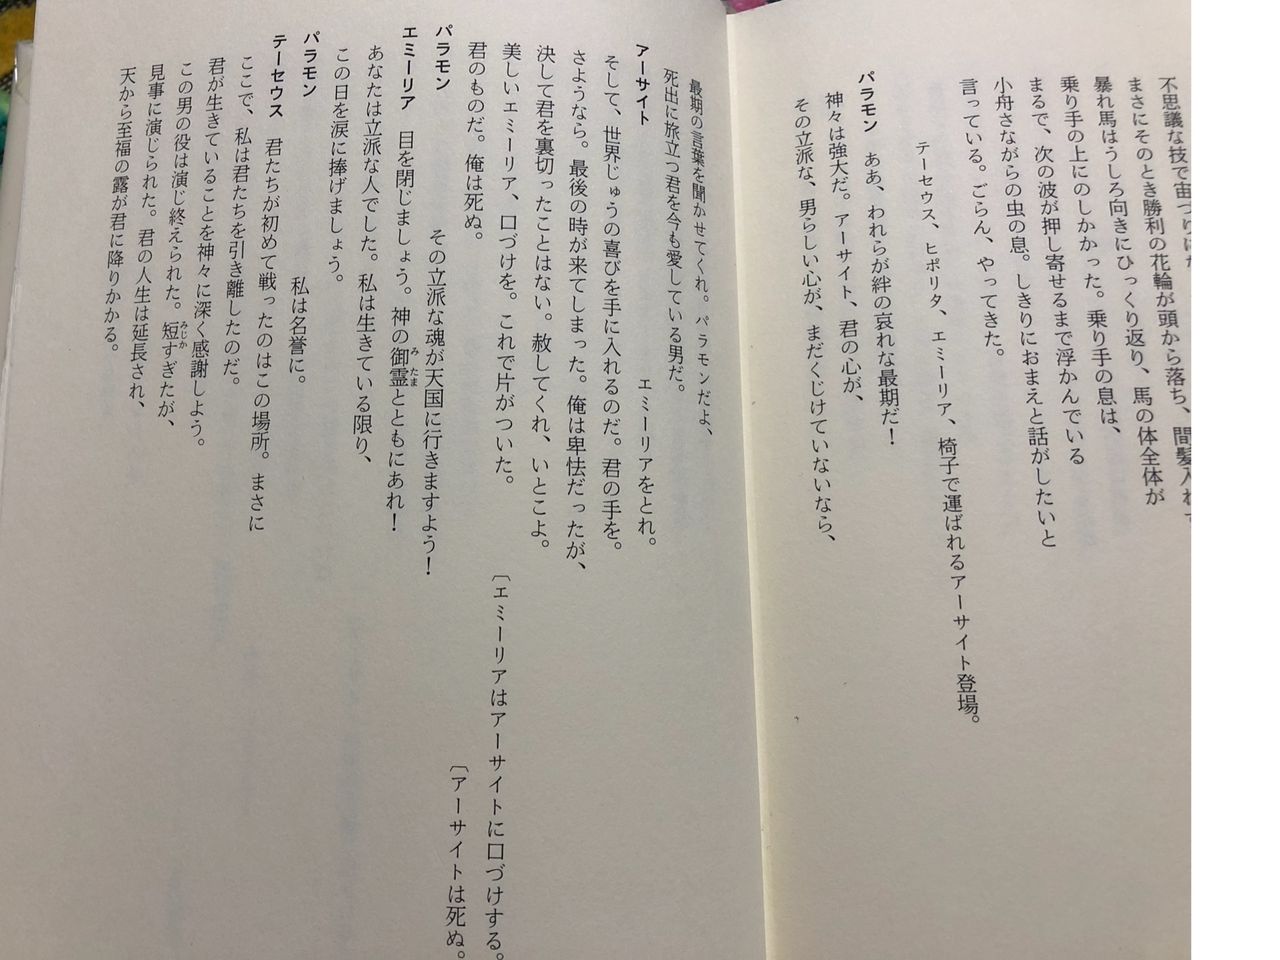 不思議な技で宙づりに
まさにそのとき勝利の花輪が頭から落ち、間髪入れ
暴れ馬はうしろ向きにひっくり返り、馬の体全体が
乗り手の上にのしかかった。乗り手の息は、
まるで、次の波が押し寄せるまで浮かんでいる
小舟さながらの虫の息。しきりにおまえと話がしたいと
言っている。ごらん、やってきた。
テーセウス、ヒポリタ、エミーリア、椅子で運ばれるアーサイト登場。
パラモン　ああ、われらが絆の哀れな最期だ！
神々は強大だ。アーサイト、君の心が、
その立派な、男らしい心が、まだくじけていないなら、
最期の言葉を聞かせてくれ。パラモンだよ、
死出に旅立つ君を今も愛している男だ。
アーサイト　エミーリアをとれ。
そして、世界じゅうの喜びを手に入れるのだ。君の手を。
さようなら。最後の時が来てしまった。俺は卑怯だったが、
決して君を裏切ったことはない。赦してくれ、いとこよ。
美しいエミーリア、口づけを。これで片がついた。
〔エミーリアはアーサイトに口づけする。
君のものだ。俺は死ぬ。
〔アーサイトは死ぬ。
パラモン　その立派な魂が天国に行きますよう！
エミーリア　目を閉じましょう。神の御霊みたまとともにあれ！
あなたは立派な人でした。私は生きている限り、
この日を涙に捧げましょう。
パラモン　私は名誉に。
テーセウス　君たちが初めて戦ったのはこの場所。まさに
ここで、私は君たちを引き離したのだ。
君が生きていることを神々に深く感謝しよう。
この男の役は演じ終えられた。短みじかすぎたが、
見事に演じられた。君の人生は延長され、
天から至福の露が君に降りかかる。